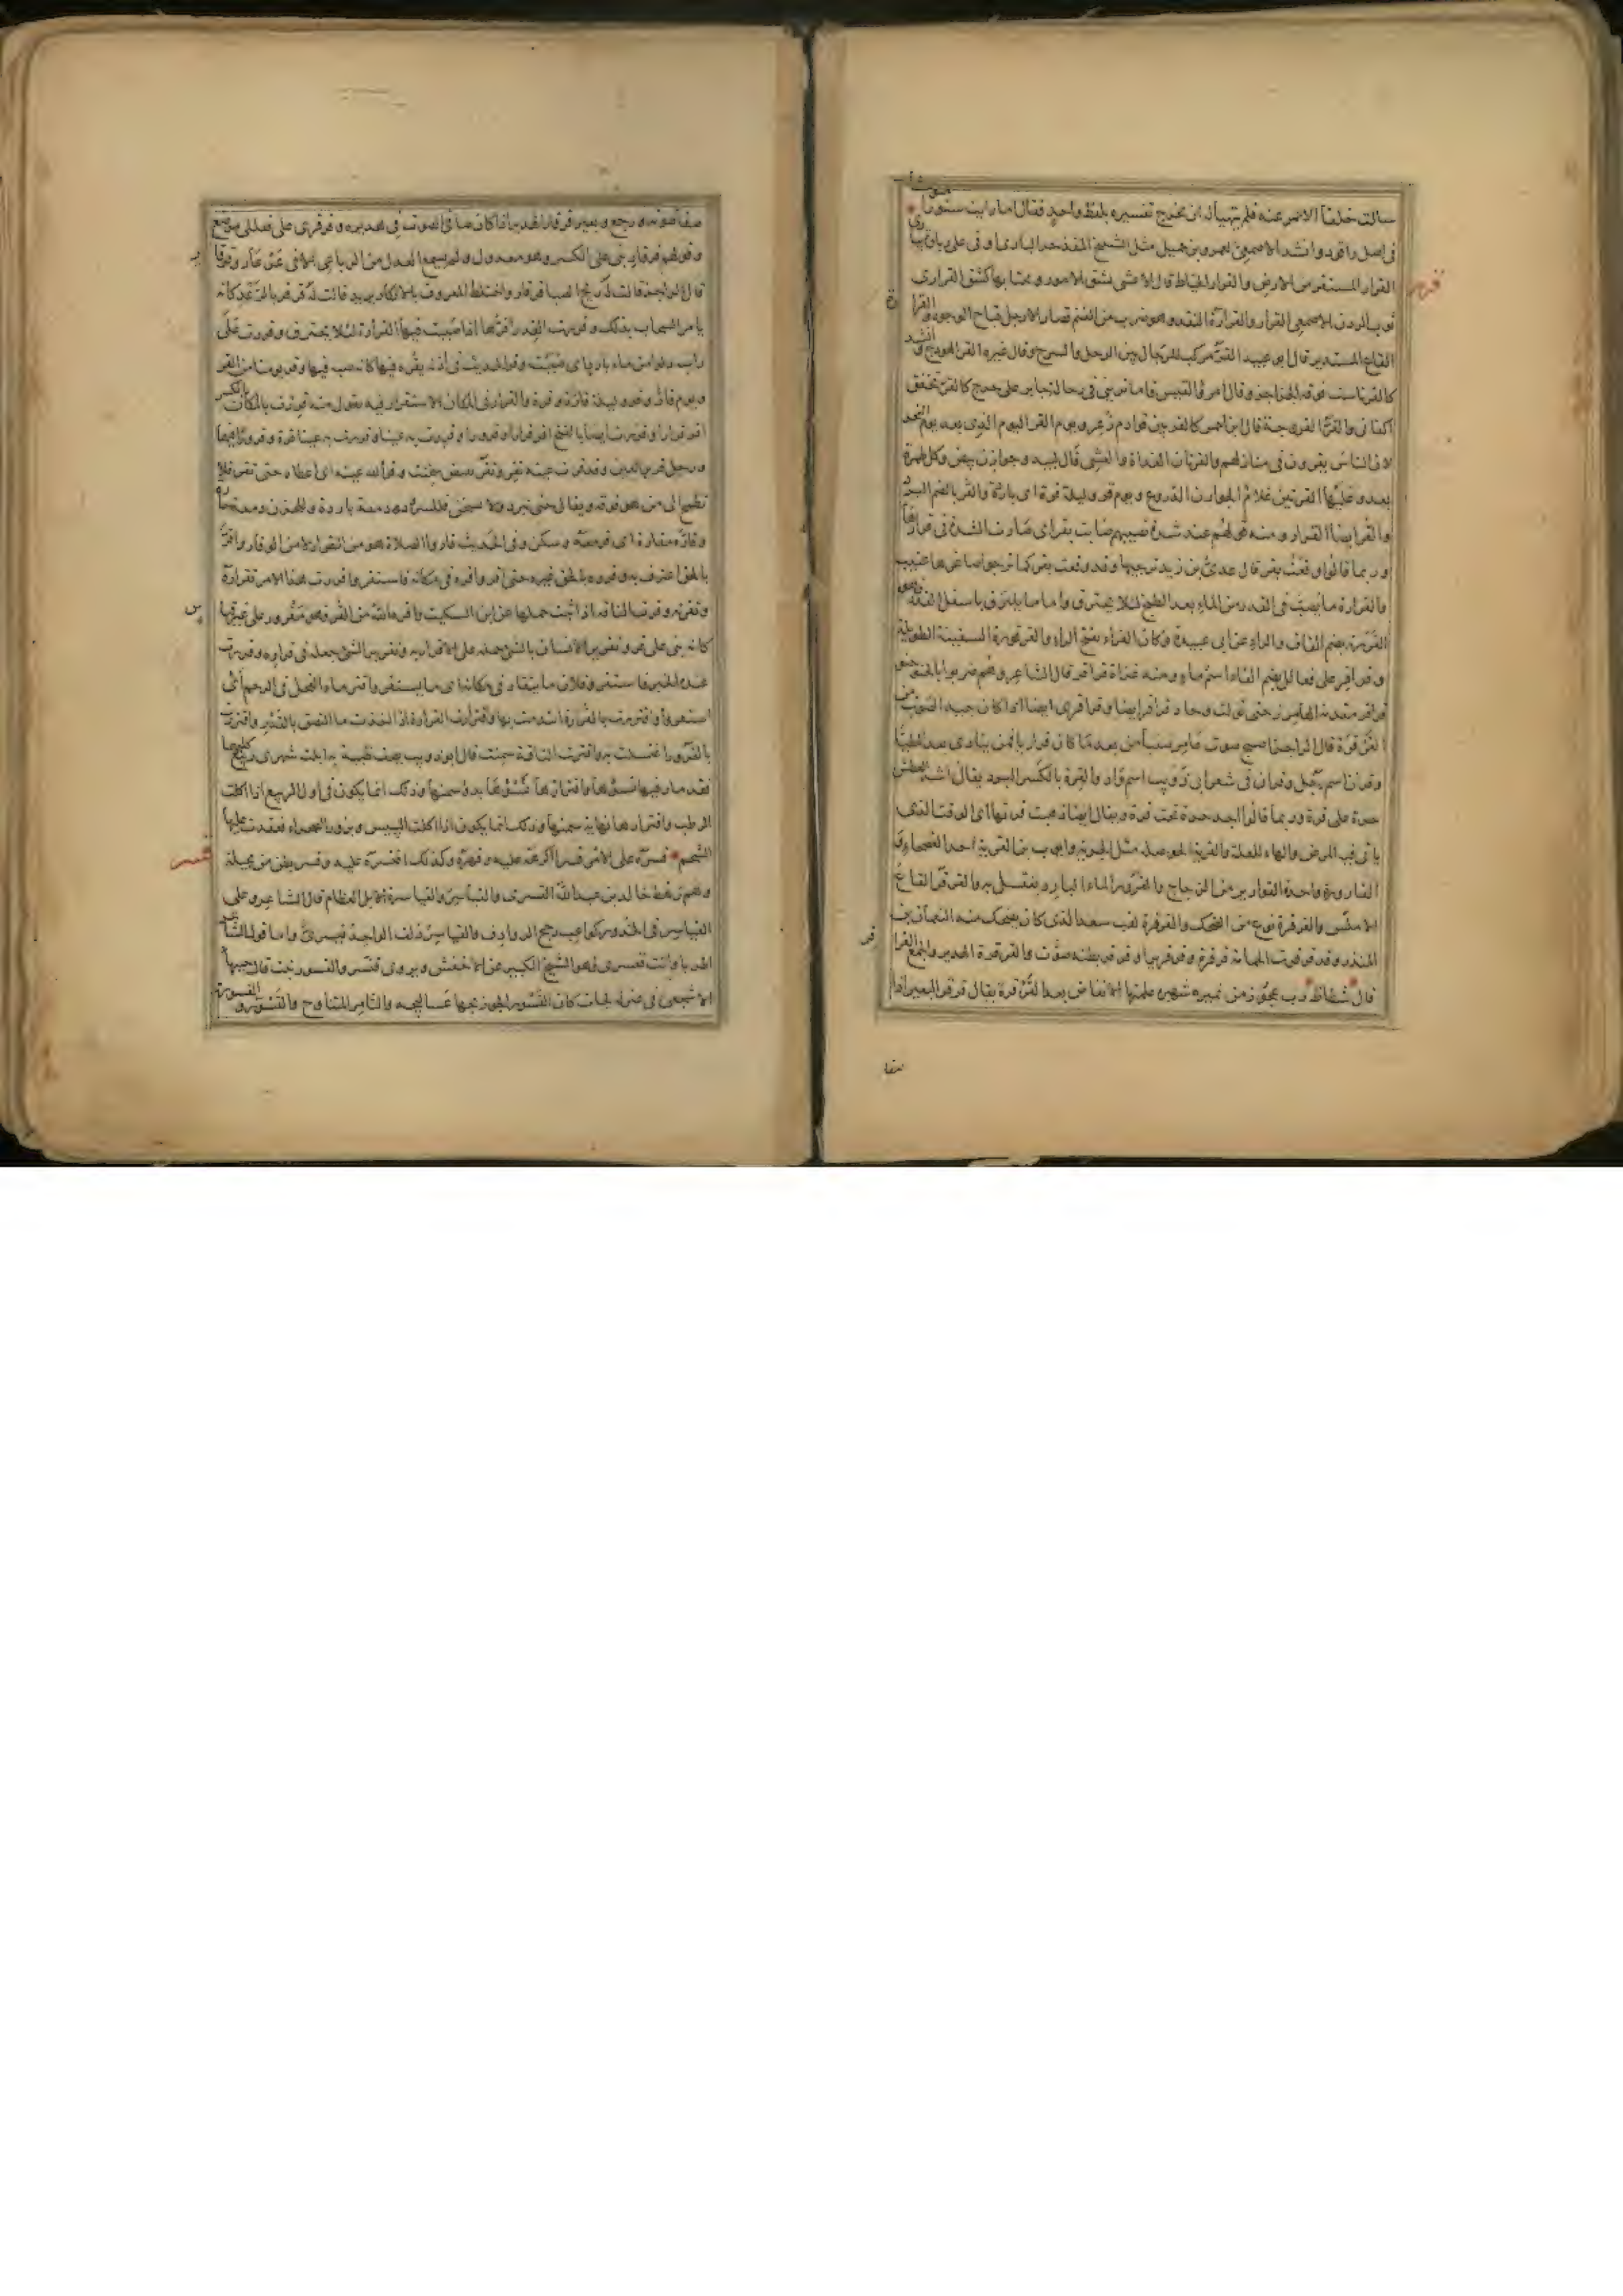 سالت خلفا الاحمر عنه فلم يتهيأ له ان يخرج تفسيره بلفظ واحد فقال ما رايت سنورا
في اصل راقود وانشد الاصمعي لعمرو بن جميل مثل الشيخ المقذحر الباذي اوفى على رباوة يباري
القرار المستقر من الارض والقرار الخياط قال الاعشى يشق الامور ويجتابها كشق القراري
ثوب الردن الاصمعي القرار والقرارة النقد وهو ضرب من الغنم قصار الارجل قباح الوجوه والقرارة
القاع المستدير قال ابو عبيد القر مركب للرجال بين الرحل والسرج وقال غيره القر الهودج وانشد
كالقر ناست فوقه الجزاجز وقال امرؤ القيس فاما تريني في رحالة جابر على حرج كالقر تخفق
اكفاني والقر الفروجة قال ابن احمر كالقر بين قوادم زعر ويوم القر اليوم الذي بعد يوم النحر
لان الناس يقرون في منازلهم والقرتان الغداة والعشي قال لبيد وجوارن بيض وكل طمرة
يعدو عليها القرتين غلام الجوارن الدروع ويوم قر وليلة قرة اي باردة والقر بالضم البرد
والقر ايضا القرار ومنه قولهم عند شدة تصيبهم صابت بقر اي صارت الشدة في قرارها
وربما قالوا وقعت بقر قال عدي بن زيد ترجيها وقد وقعت بقر كما ترجو اصاغرها عتيب
والقرارة ما يصب في القدر من الماء بعد الطبخ لئلا يحترق واما ما يلتزق باسفل القدر فهو
القررة بضم القاف والراء عن ابي عبيدة وكان الفراء يفتح الراء والقرقور السفينة الطويلة
وقراقر على فعالل بضم القاف اسم ماء ومنه غزاة قراقر قال الشاعر وهم ضربوا بالحنو حنو
قراقر مقدمة الهامرز حتى تولت وحاد قراقر ايضا وقراقري ايضا اذا كان جيد الصوت من
القرقرة قال الراجز اصبح صوت عامر صئيا من بعد ما كان قراقريا فمن ينادي بعدك المطيا
وقران اسم رجل وقران في شعر ابي ذويب اسم واد والقرة بالكسر البرد يقال اشد العطش
حرة على قرة وربما قالوا اجد حرة تحت قرة ويقال ايضا ذهبت قرتها اي الوقت الذي
ياتي فيه المرض والهاء للعلة والقرية الحوصلة مثل الجرية وايوب بن القرية احد الفصحاء و
القارورة واحدة القوارير من الزجاج والقرور الماء البارد يغتسل به والقرقر القاع
الاملس والقرقرة نوع من الضحك والقرقرة لقب سعد الذي كان يضحك منه النعمان بن
المنذر وقد قرقرت الحمامة قرقرة وقرقريرا وقرقر بطنه صوت والقرقرة الهدير والجمع القراقر
قال شظاظ رب عجوز من نمير شهبره علمتها الانقاض بعد القرقرة يقال قرقر البعير اذا
صفا
قرر
صفا صوته ورجع وبعير قرقار الهدير اذا كان صافي الصوت في هديره وقرقرى على فعللى موضع
وقولهم قرقار بني على الكسر وهو معدول ولم يسمع العدل من الرباعي الا في عرعار وقرقار
قال الراجز قالت له ريح الصبا قرقار واختلط المعروف بالانكار يريد قالت له قرقر بالرعد كانه
يامر السحاب بذلك وقررت القدر اقرها اذا صببت فيها القرارة لئلا يحترق وقررت على
راسه دلوا من ماء بارد اي صببت وقر الحديث في اذنه يقره فيها كانه صبه فيها وقر يومنا من القر
ويوم قار وقر وليلة قارة وقرة والقرار في المكان الاستقرار فيه يقول منه قررت بالمكان بالكسر
اقر قرارا وقررت ايضا بالفتح اقر قرارا وقرورا وقررت به عينا وقررت به عينا قرة وقرورا فيهما
ورجل قرير العين وقد قرت عينه تقر وتقر نقيض سخنت واقر الله عينه اي اعطاه حتى تقر فلا
تطمح الى من هو فوقه ويقال حتى تبرد ولا تسخن فللسرور دمعة باردة وللحزن دمعة حارة
وقاره مقارة اي قر معه وسكن وفي الحديث قاروا الصلاة هو من القرار لا من الوقار واقر
بالحق اعترف به وقرره بالحق غيره حتى اقر واقره في مكانه فاستقر واقررت هذا الامر تقرارة
وتقرة وقرت الناقة اذا ثبت حملها عن ابن السكيت واقره الله من القر فهو مقرور على غير قياس
كانه بني على قر وتقرير الانسان بالشيء حمله على الاقرار به وتقرير الشيء جعله في قراره وقررت
عنده الخبر فاستقر وفلان ما يتقار في مكانه اي ما يستقر واقتر ماء الفحل في الرحم اي
استقر واقتررت بالقرارة ائتدمت بها واقتررت القرارة اذا اخذت ما التصق بالقدر واقتررت
بالقرور اغتسلت به واقترت الناقة سمنت قال ابو ذويب يصف ظبية به ابلت شهري ربيع كليهما
فقد مار فيها نسؤها واقترارها نسؤها بدؤ سمنها وذلك انما يكون في اول الربيع اذا اكلت
الرطب واقترارها نهاية سمنها وذلك انما يكون اذا اكلت اليبيس وبزور الصحراء فعقدت عليها
الشحم قسره على الامر قسرا اكرهه عليه وقهره وكذلك اقتسره عليه وقسر بطن من بجيلة
وهم رهط خالد بن عبد الله القسري والقياسر والقياسرة الابل العظام قال الشاعر وعلى
القياسر في الخدور كواعب رجح الروادف فالقياسر دلف الواحد قيسري واما قول العجاج
اطربا وانت قنسري فهو الشيخ الكبير عن الاخفش ويروى قنسر والقسور نبت قال جبيها
الاشجعي في صفة لجات كان القسور الجون بجها عساليجه والثامر المتناوح والقسور والقسورة
قسر